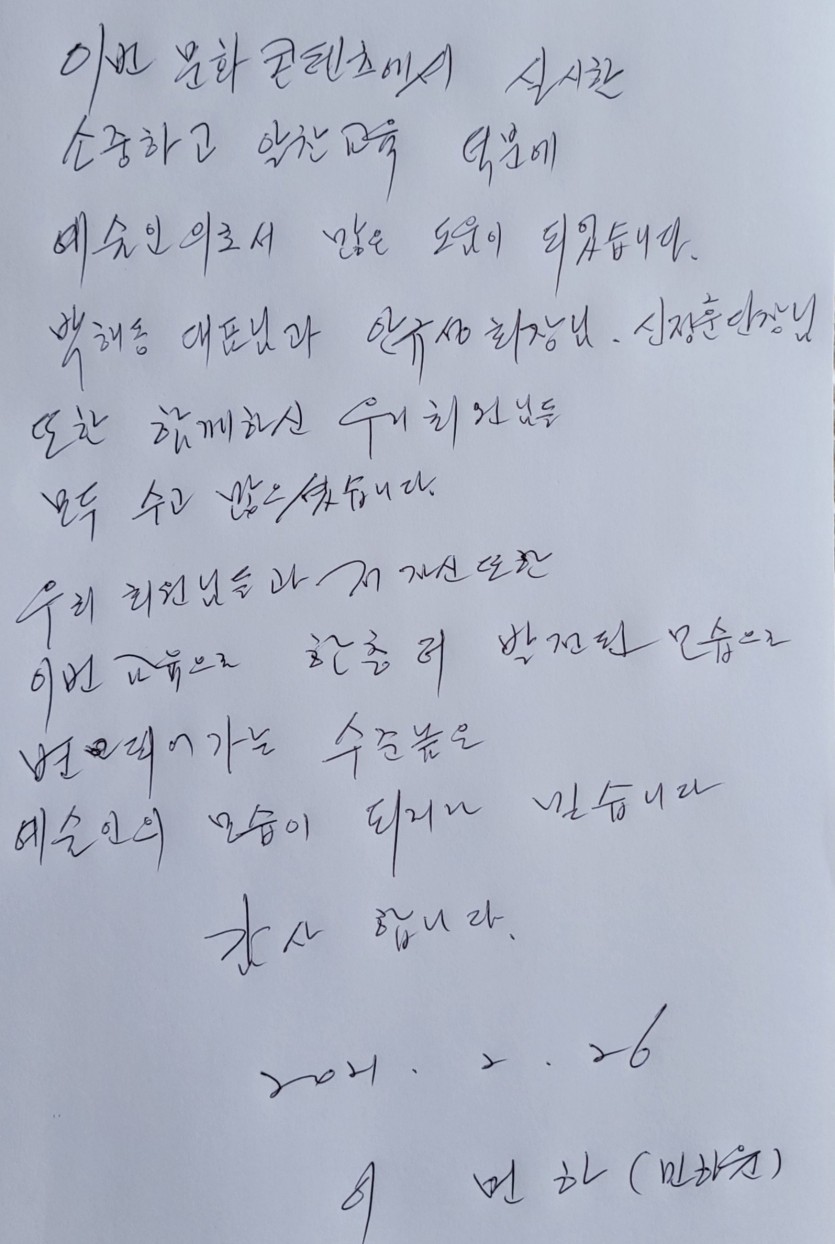 이번 문화콘텐츠에서 실시한
소중하고 알찬교육 덕분에
예술인의로서 많은 도움이 되었습니다.
백해동 대표님과 안규성회장님. 신정훈단장님
또한 함께하신 우리회원님들
모두 수고 많으셨습니다.
우리 회원님들과 저 자신또한
이번 교육으로 한층 더 발전된 모습으로
변모되어가는 수준높은
예술인의 모습이 되리라 믿습니다
감사 합니다.
2021. 2. 26
이 하